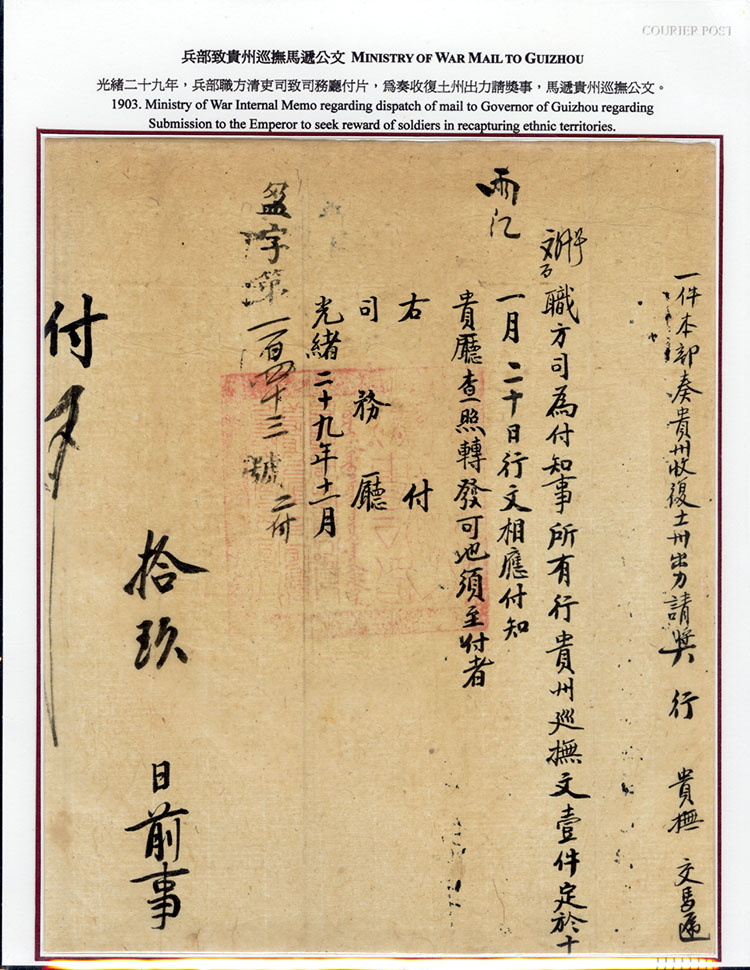 COURIER POST
兵部致貴州巡撫馬遞公文 MINISTRY OF WAR MAIL TO GUIZHOU
光緒二十九年，兵部職方清吏司致司務廳付片，為奏收復土州出力請獎事，馬遞貴州巡撫公文。
1903. Ministry of War Internal Memo regarding dispatch of mail to Governor of Guizhou regarding
Submission to the Emperor to seek reward of soldiers in recapturing ethnic territories.
一件本部奏貴州收復土州出力請奬 行 貴撫 交馬遞
職方司為付知事所有行貴州巡撫文壹件定於十
一月二十日行文相應付知
貴廳查照轉發可也須至付者
右付
司務廳
光緒二十九年十一月
盈字第一百四十三號 二付
拾玖 日前事
付